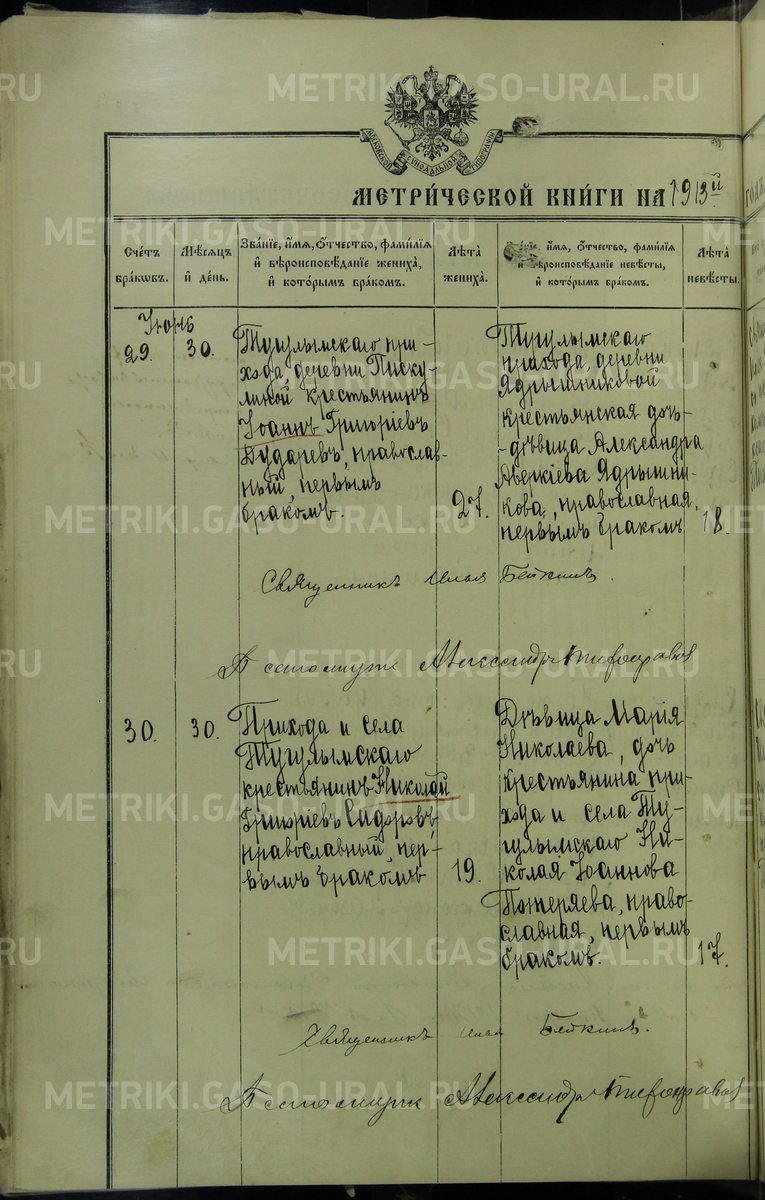 METRIKI.GASO-URAL.RU
МОСКОВСКОЙ СѴНОДАЛЬНОЙ ТИПОГРАФІИ
МЕТРИ́ЧЕСКОЙ КНИ́ГИ НА 1913й
Сче́тъ бра́ковъ.
Мѣ́сяцъ и́ де́нь.
Зва́нїе, и́мѧ, ѻ҆́тчество, фами́лїѧ и҆ вѣроисповѣ́данїе жениха̀, и҆ кото́рымъ бра́комъ.
Лѣ́та жениха̀.
и́мѧ, ѻ҆́тчество, фами́лїѧ и҆ вѣроисповѣ́данїе невѣ́сты, и҆ кото́рымъ бра́комъ.
Лѣ́та невѣ́сты.
Іюнь
29.
30.
Тугулымскаго при-
хода, деревни Писку-
линой крестьянинъ
Іоаннъ Григоріевъ
Дударевъ, православ-
ный, первымъ
бракомъ.
27.
Тугулымскаго
прихода, деревни
Ядрышниковой
крестьянская дочь-
-дѣвица Александра
Аверкіева Ядрышни-
кова, православная,
первымъ бракомъ
18.
Священникъ Илья Бейкинъ.
Псаломщикъ Александръ
30.
30.
Прихода и села
Тугулымскаго
крестьянинъ Николай
Григоріевъ Сидоровъ,
православный, пер-
вымъ бракомъ
19.
Дѣвица Марія
Николаева, дочь
крестьянина при-
хода и села Ту-
гулымскаго Ни-
колая Іоаннова
Потеряева, право-
славная, первымъ
бракомъ.
17.
Священникъ Илья Бейкинъ.
Псаломщикъ Александръ